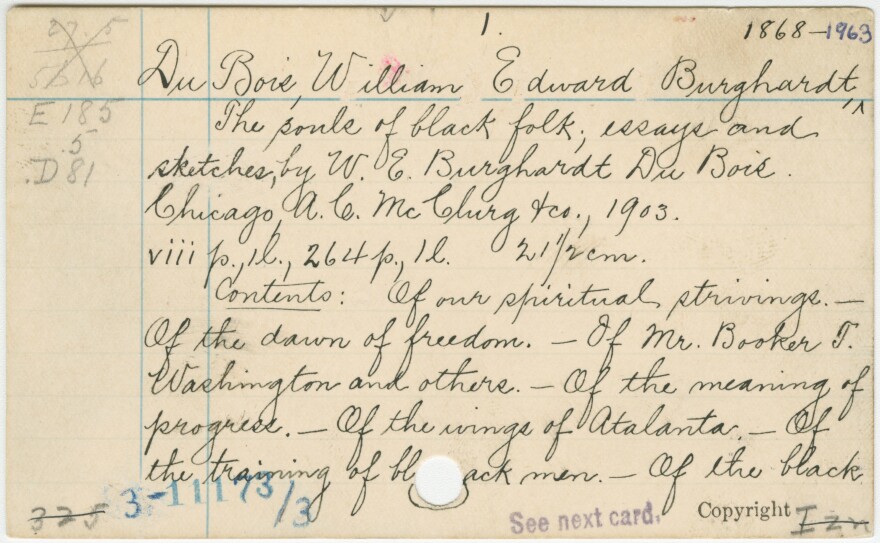 1.
1868-1963
27.5
5616
Du Bois, William Edward Burghardt,
E185
.5
.D81
The souls of black folk; essays and
sketches, by W. E. Burghardt Du Bois.
Chicago, A. C. McClurg & co., 1903.
viii p., 1 l., 264 p., 1 l. 21 1/2 cm.
Contents: Of our spiritual strivings. —
Of the dawn of freedom. — Of Mr. Booker T.
Washington and others. — Of the meaning of
progress. — Of the wings of Atalanta. — Of
the training of black men. — Of the black
325
3-11173/3
See next card.
Copyright